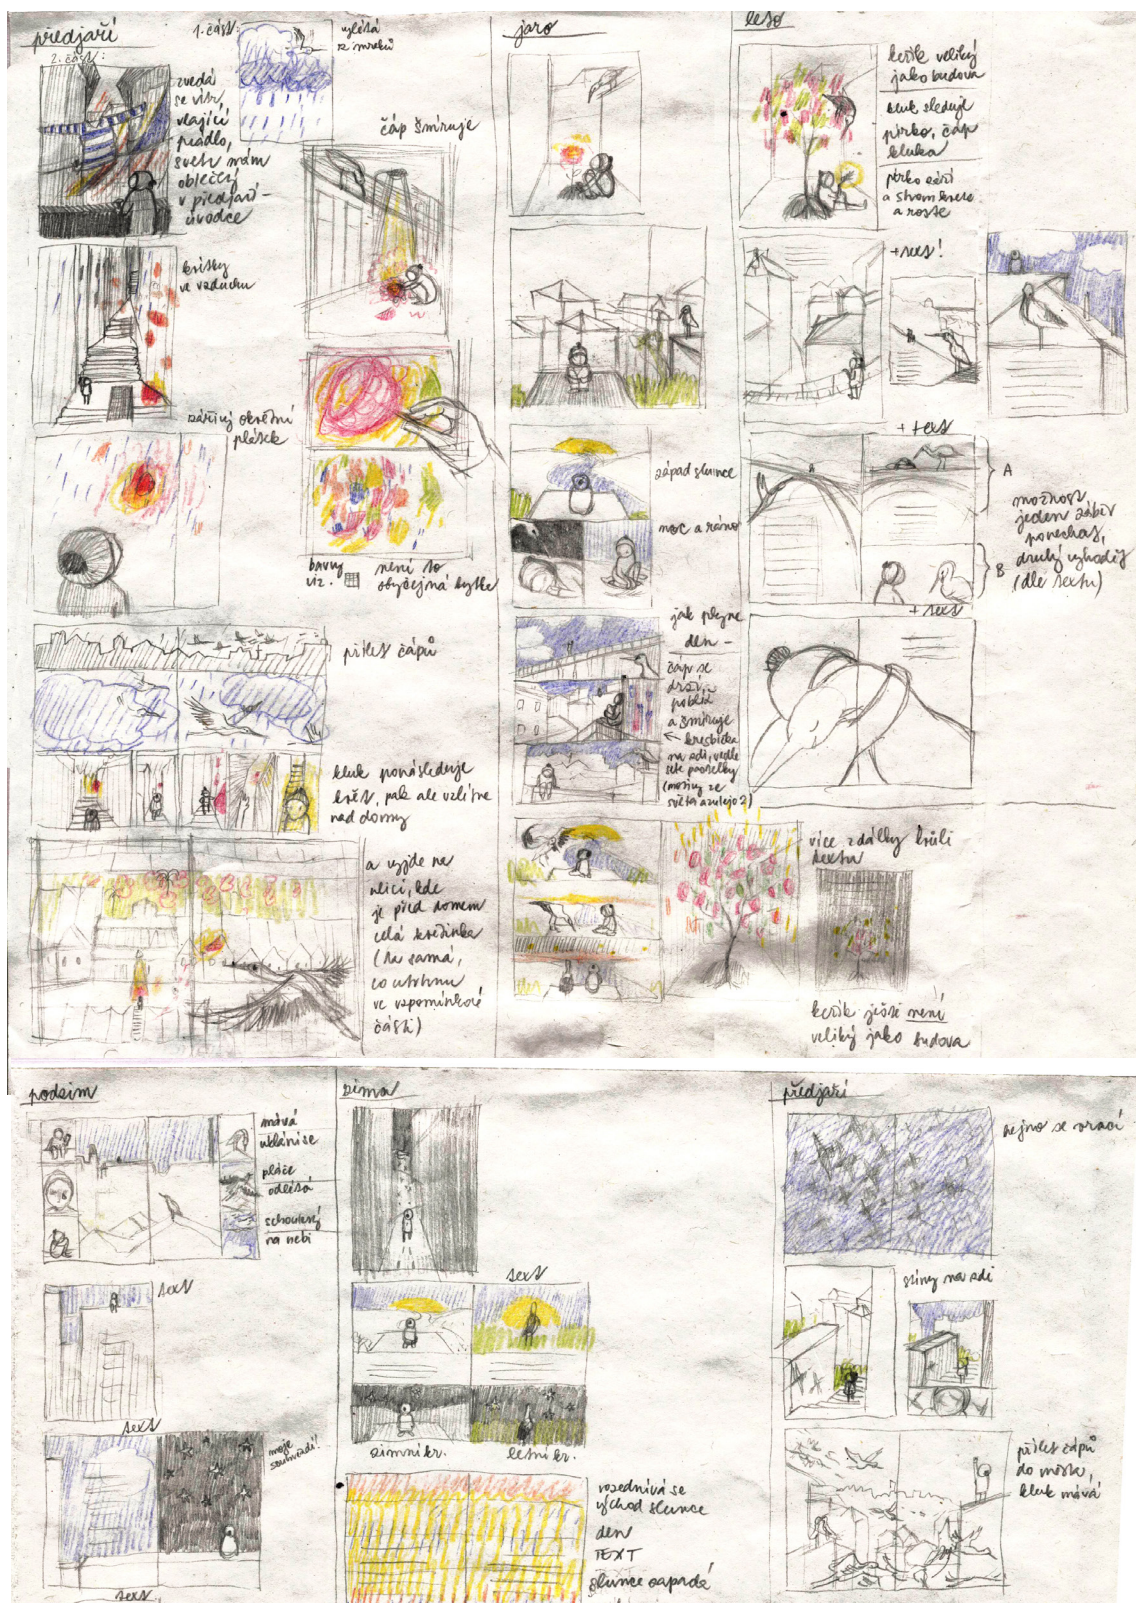 předjaří
1. část:
2. část:
vylétá
z mraků
zvedá
se vítr,
vlající
prádlo,
svetr mám
oblečený
v předjaří -
úvodce
čáp šmíruje
kvítky
ve vzduchu
zářivý okvětní
plátek
barvy
viz.
není to
obyčejná kytka
přílet čápů
kluk pronásleduje
květ, pak ale vzlétne
nad domy
a vyjde na
ulici, kde
je před domem
celá květinka
(ta samá,
co utrhnu
ve vzpomínkové
části)
jaro
západ slunce
noc a ráno
jak plyne
den -
čáp se
drží
poblíž
a šmíruje
← kresbička
na zdi, vedle
(motivy ze
světa azulejo?)
léto
keřík veliký
jako budova
kluk sleduje
pírko, čáp
kluka
pírko září
a strom kvete
a roste
+ text!
+ text
A
B
možnost
jeden záběr
ponechat,
druhý vyhodit
(dle textu)
+ text
více z dálky kvůli
textu
keřík ještě není
veliký jako budova
podzim
mává
uklání se
pláče
odlétá
schoulený
na nebi
text
text
moje
souhvězdí!
text
zima
text
zimní kr.
letní kr.
rozednívá se
východ slunce
den
TEXT
slunce zapadá
předjaří
hejno se vrací
stíny na zdi
přílet čápů
do města,
kluk mává